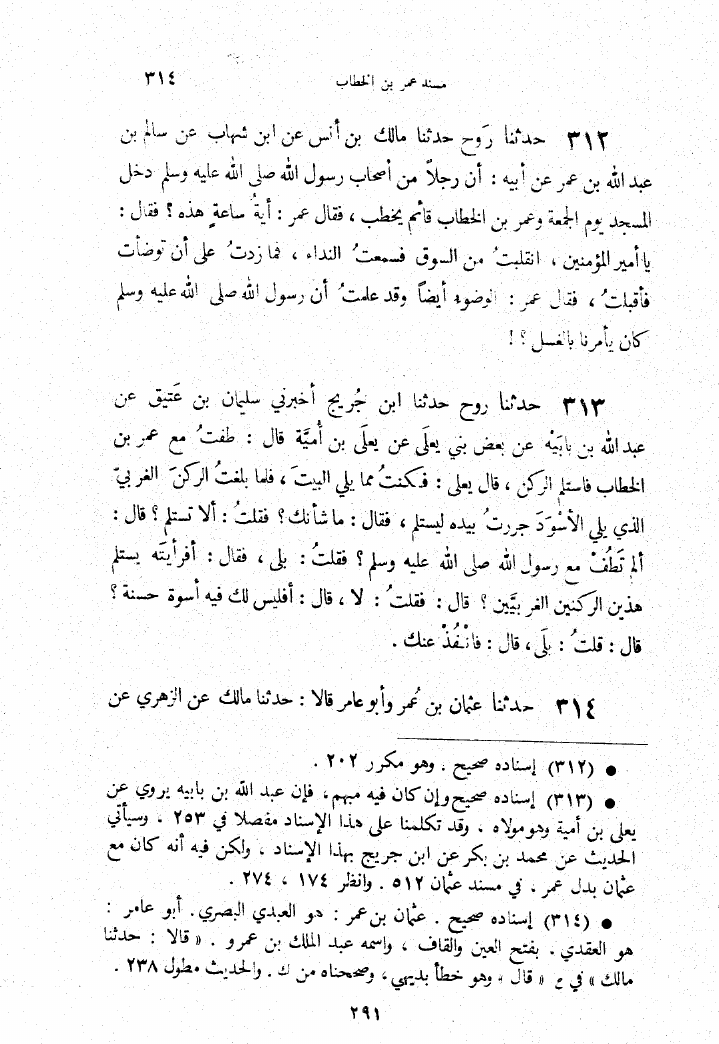 مسند عمر بن الخطاب ٣١٤
٣١٢ حدثنا رَوح حدثنا مالك بن أنس عن ابن شهاب عن سالم بن
عبد الله بن عمر عن أبيه : أن رجلاً من أصحاب رسول الله صلى الله عليه وسلم دخل
المسجد يوم الجمعة وعمر بن الخطاب قائم يخطب ، فقال عمر : أيةُ ساعةٍ هذه ؟ فقال :
يا أمير المؤمنين ، انقلبتُ من السوق فسمعتُ النداء ، فما زدتُ على أن توضأت
فأقبلتُ ، فقال عمر : الوضوء أيضاً وقد علمتُ أن رسول الله صلى الله عليه وسلم
كان يأمرنا بالغسل ؟ !
٣١٣ حدثنا روح حدثنا ابن جُريج أخبرني سليمان بن عَتيق عن
عبد الله بن بابَيْه عن بعض بني يعلَى عن يعلَى بن أُميَّة قال : طفتُ مع عمر بن
الخطاب فاستلم الركن ، قال يعلى : فكنتُ مما يلي البيتَ ، فلما بلغتُ الركنَ الغربيّ
الذي يلي الأَسْوَدَ جررتُ بيده ليستلم ، فقال : ما شأنك ؟ فقلتُ : ألا تستلم ؟ قال :
ألم تَطُفْ مع رسول الله صلى الله عليه وسلم ؟ فقلتُ : بلى ، فقال : أفرأيتَه يستلم
هذين الركنين الغربيَّين ؟ قال : فقلتُ : لا ، قال : أفليس لك فيه أسوة حسنة ؟
قال : قلتُ : بلَى ، قال : فانْفُذْ عنك .
٣١٤ حدثنا عثمان بن عُمر وأبو عامر قالا : حدثنا مالك عن الزهري عن
● (٣١٢) إسناده صحيح . وهو مكرر ٢٠٢ .
● (٣١٣) إسناده صحيح وإن كان فيه مبهم ، فإن عبد الله بن بابيه يروي عن
يعلى بن أمية وهو مولاه ، وقد تكلمنا على هذا الإسناد مفصلا في ٢٥٣ ، وسيأتي
الحديث عن محمد بن بكر عن ابن جريج بهذا الإسناد ، ولكن فيه أنه كان مع
عثمان بدل عمر ، في مسند عثمان ٥١٢ . وانظر ١٧٤ ، ٢٧٤ .
● (٣١٤) إسناده صحيح . عثمان بن عمر : هو العبدي البصري . أبو عامر :
هو العقدي . بفتح العين والقاف ، واسمه عبد الملك بن عمرو . « قالا : حدثنا
مالك » في ع « قال » وهو خطأ بديهي ، وصححناه من ك . والحديث مطول ٢٣٨ .
٢٩١